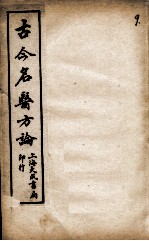 古今名醫方論
上海大成書局
印行
9.